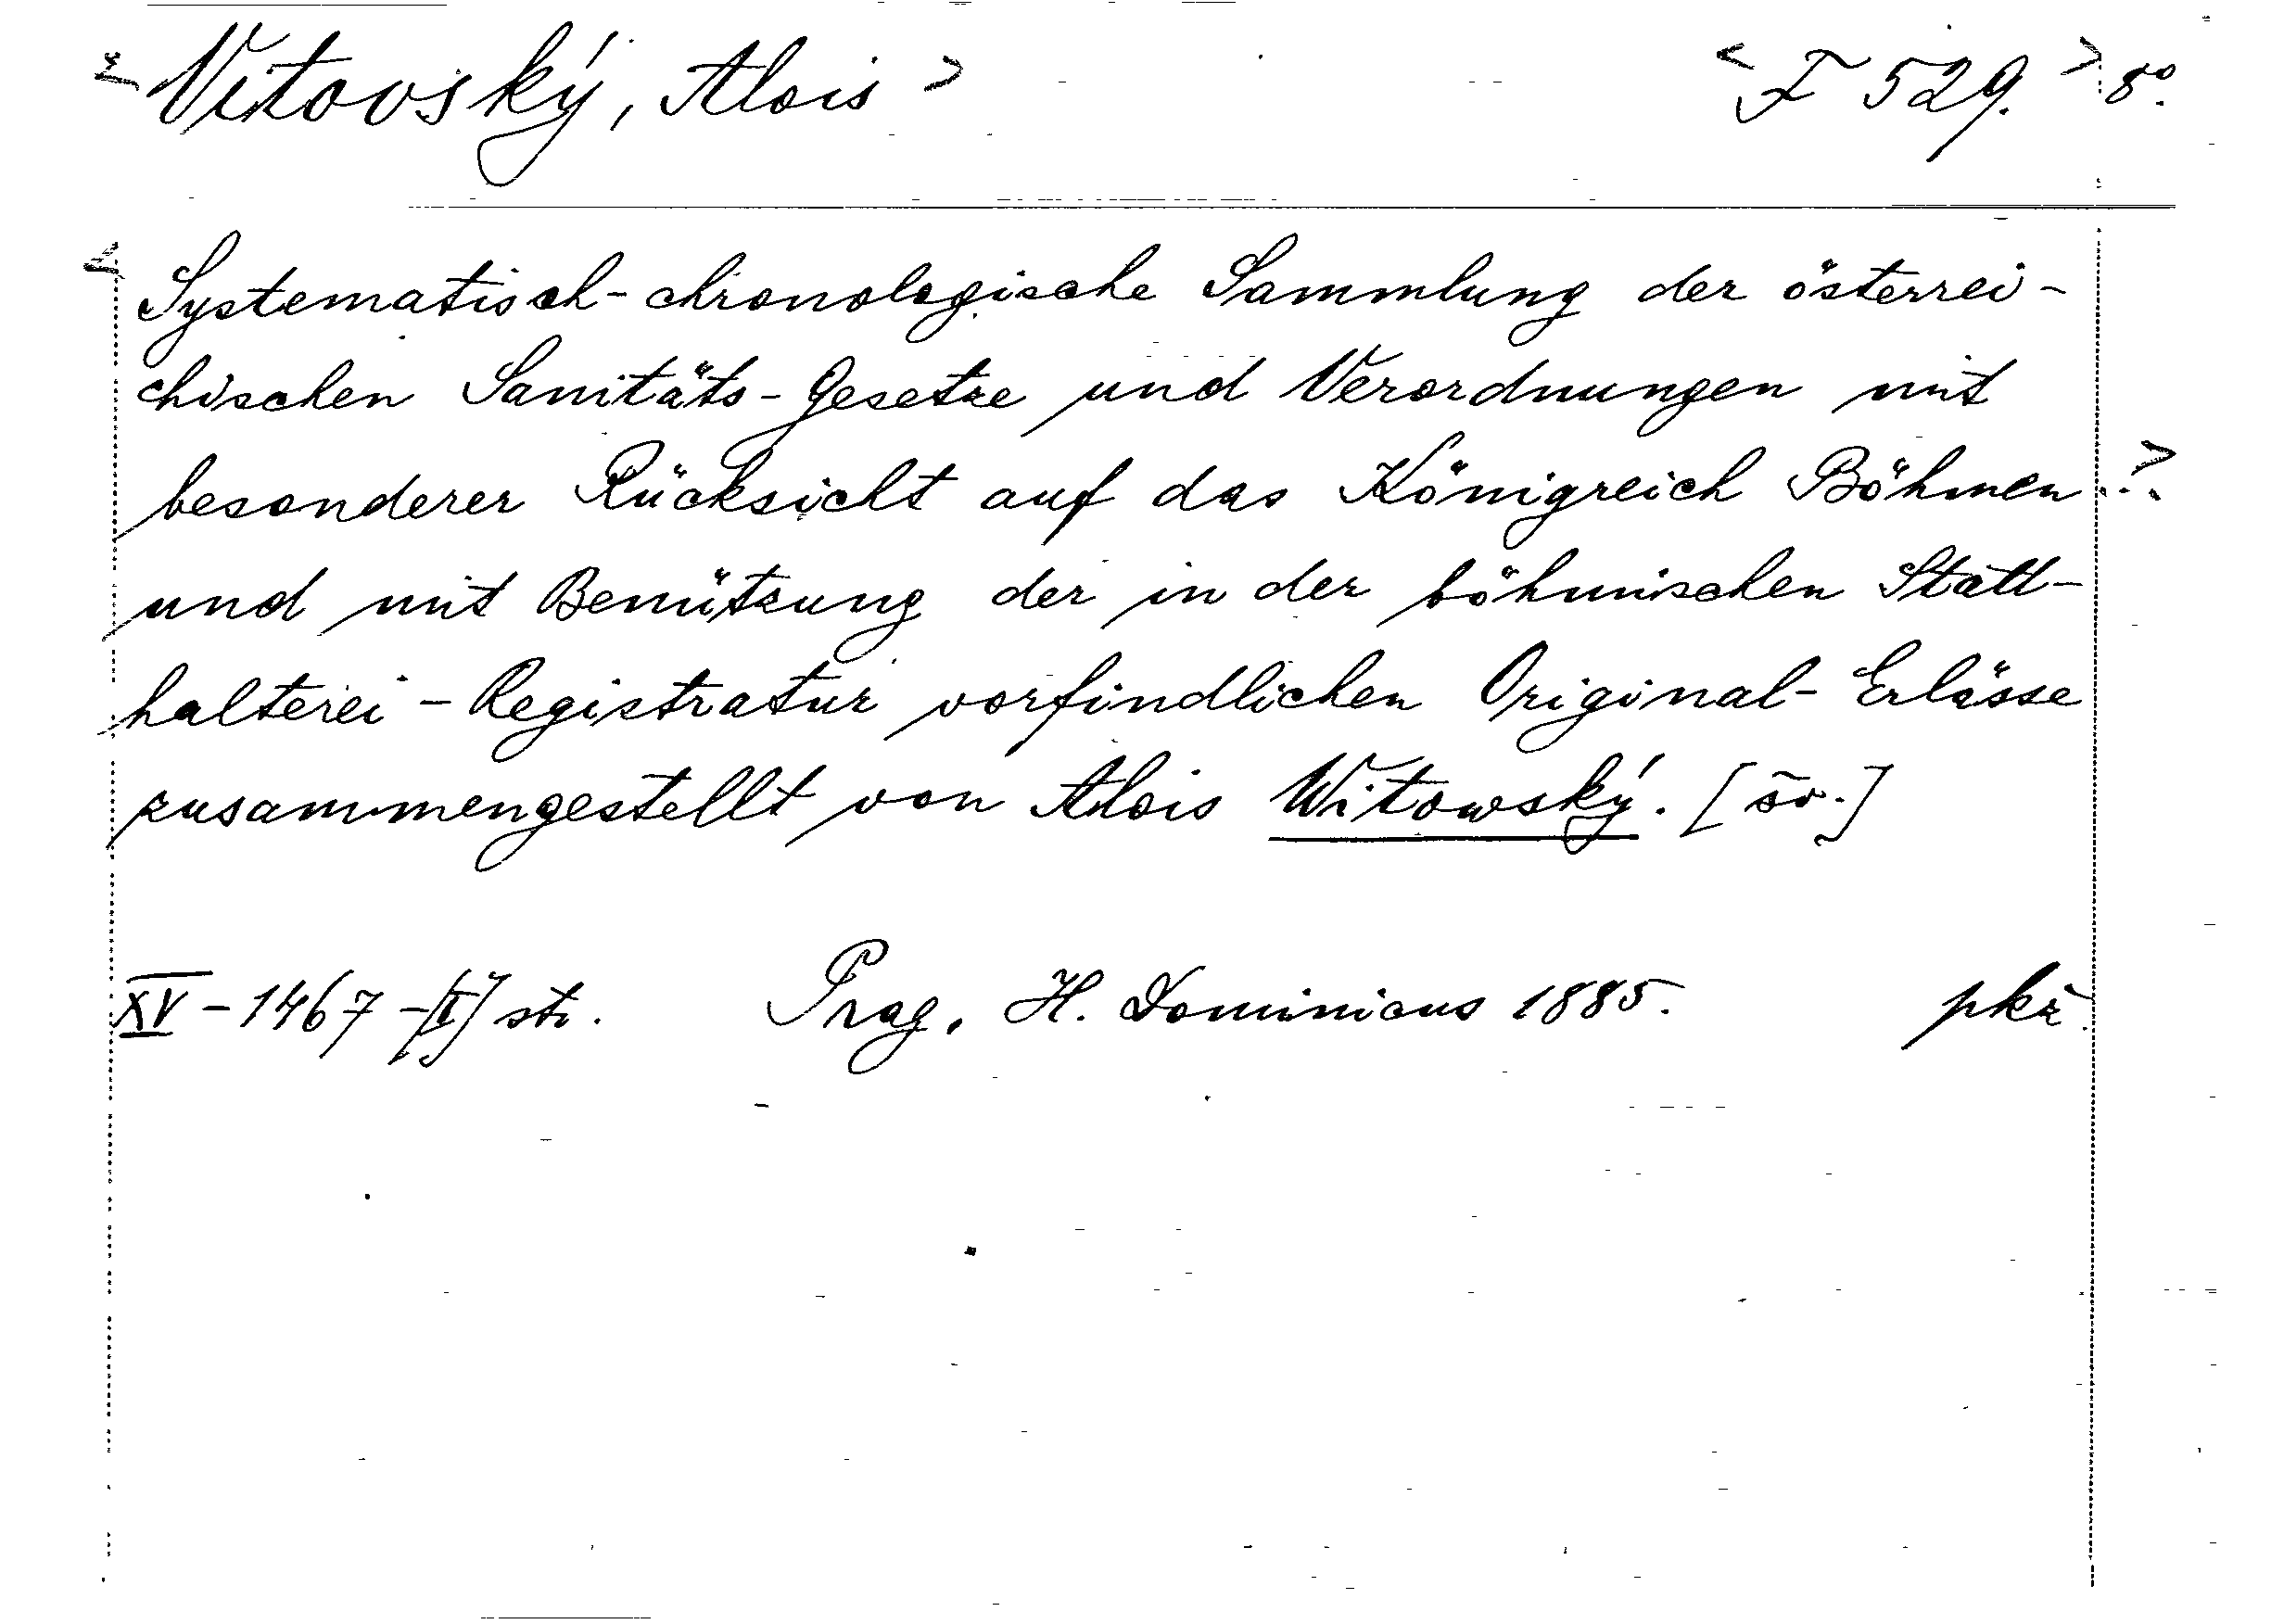 <Vitovský, Alois> <F 529.> 8º.
<Systematisch-chronologische Sammlung der österrei-
chischen Sanitäts-Gesetze und Verordnungen mit
besonderer Rücksicht auf das Königreich Böhmen..>
und mit Benützung der in der böhmischen Statt-
halterei-Registratur vorfindlichen Original-Erlässe
zusammengestellt von Alois Witowský.
XV-1467-[I] str. Prag, H. Dominicus 1885. pkž.